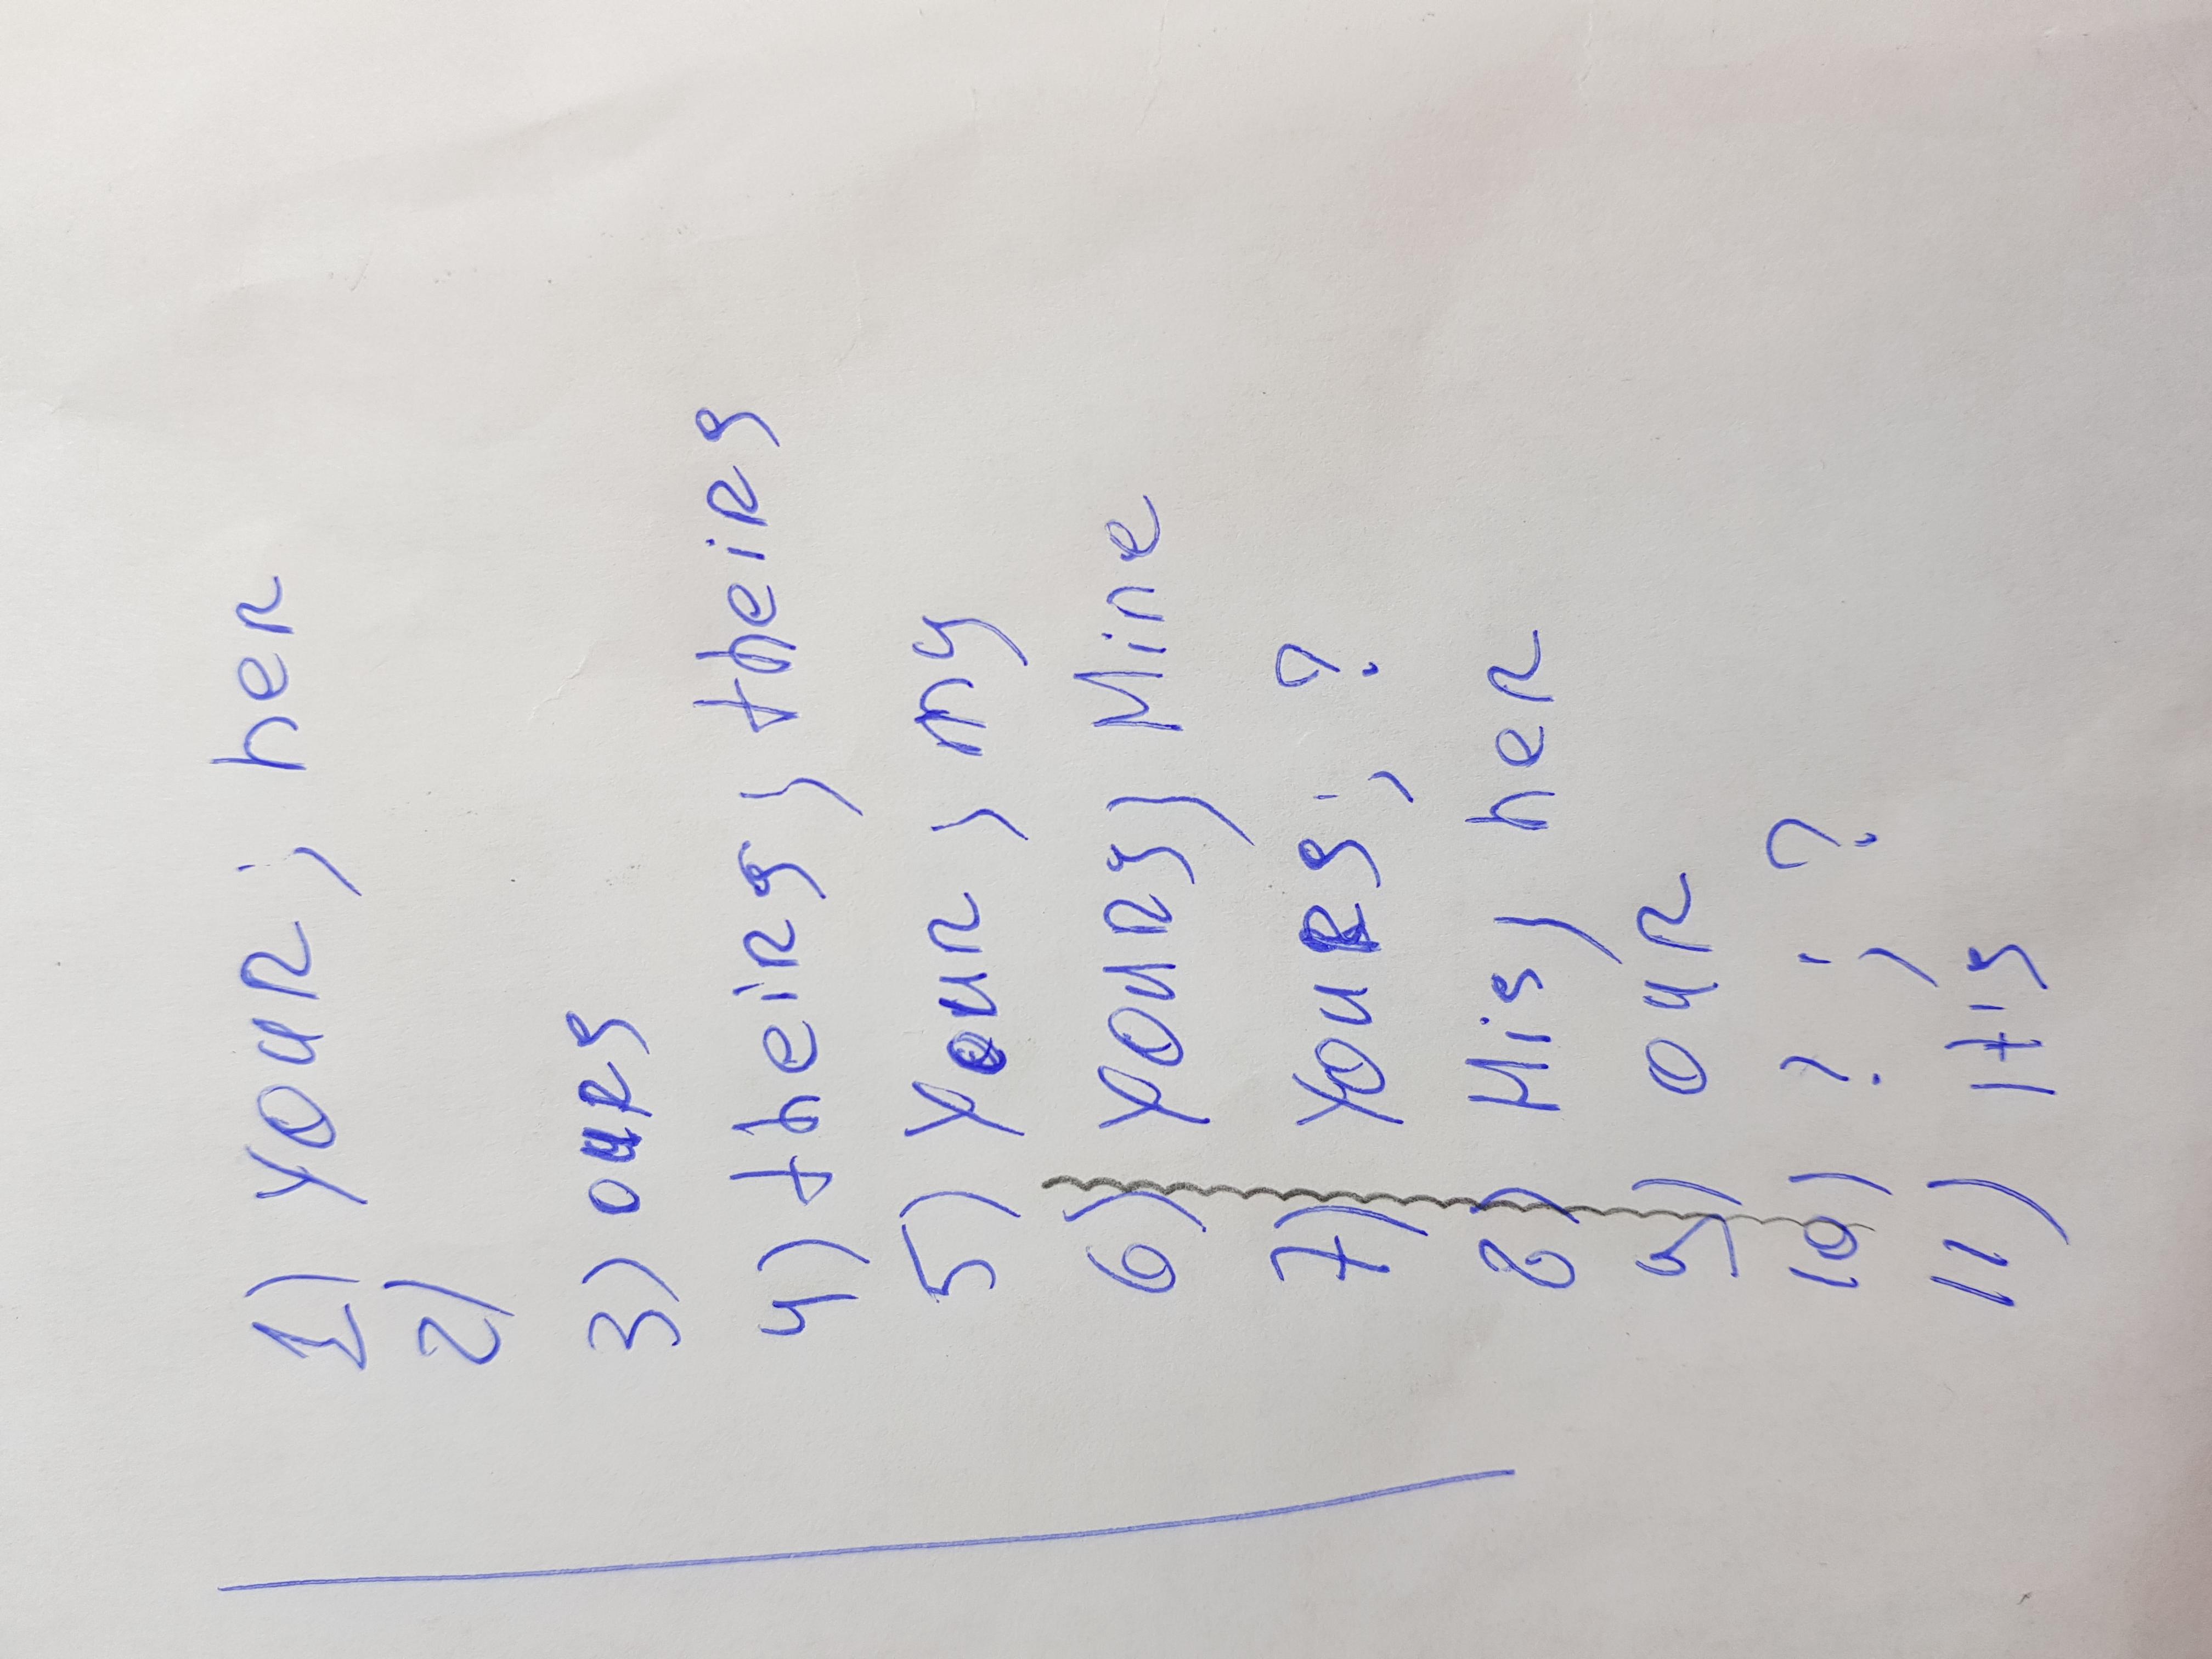 1) Your; her
2)
3) ours
4) theirs; theirs
5) Your; my
6) Yours; Mine
7) Yours; ?
8) His; her
9) our
10) ?; ?
11) Its